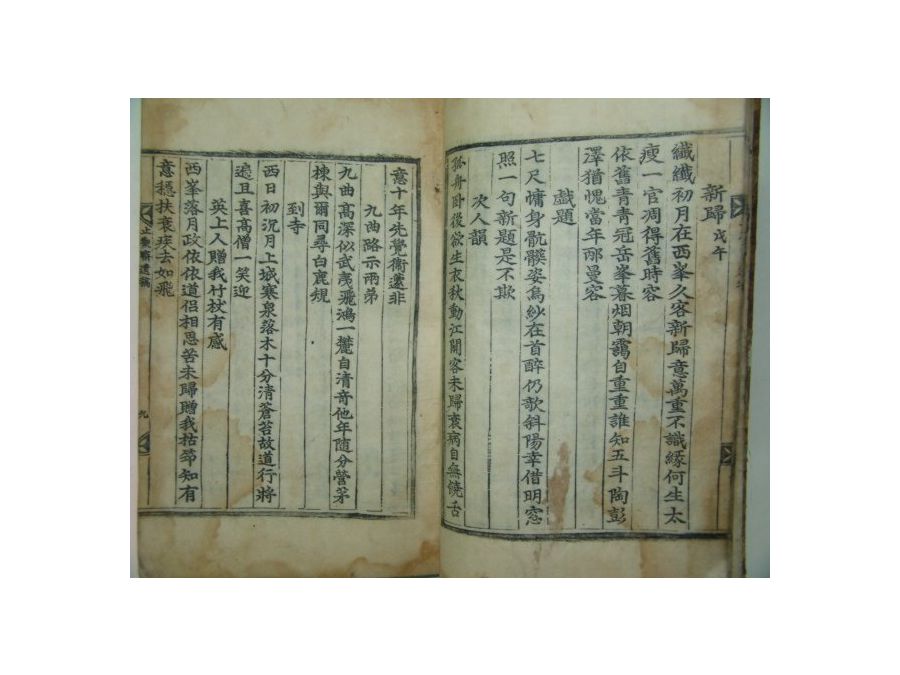 新歸 戊午
纖纖初月在西峯久客新歸意萬重不識緣何生太
瘦一官凋得舊時容
依舊青青冠岳峯暮烟朝靄自重重誰知五斗陶彭
澤猶愧當年邴曼容
戱題
七尺慵身骯髒姿烏紗在首醉仍欹斜陽幸借明窓
照一句新題是不欺
次人韻
孤舟日後欲生衣秋動江關客未歸衰病自無饒舌
意十年先覺衛蘧非
九曲略示兩弟
九曲高深似武夷飛鴻一麓自清奇他年隨分營茅
棟與爾同尋白鹿規
到寺
西日初沉月上城寒泉落木十分清蒼苔故道行將
遠且喜高僧一笑迎
英上人贈我竹杖有感
西峯落月政依依道侶相思苦未歸贈我枯筇知有
意穩扶衰疾去如飛
遺稿
九